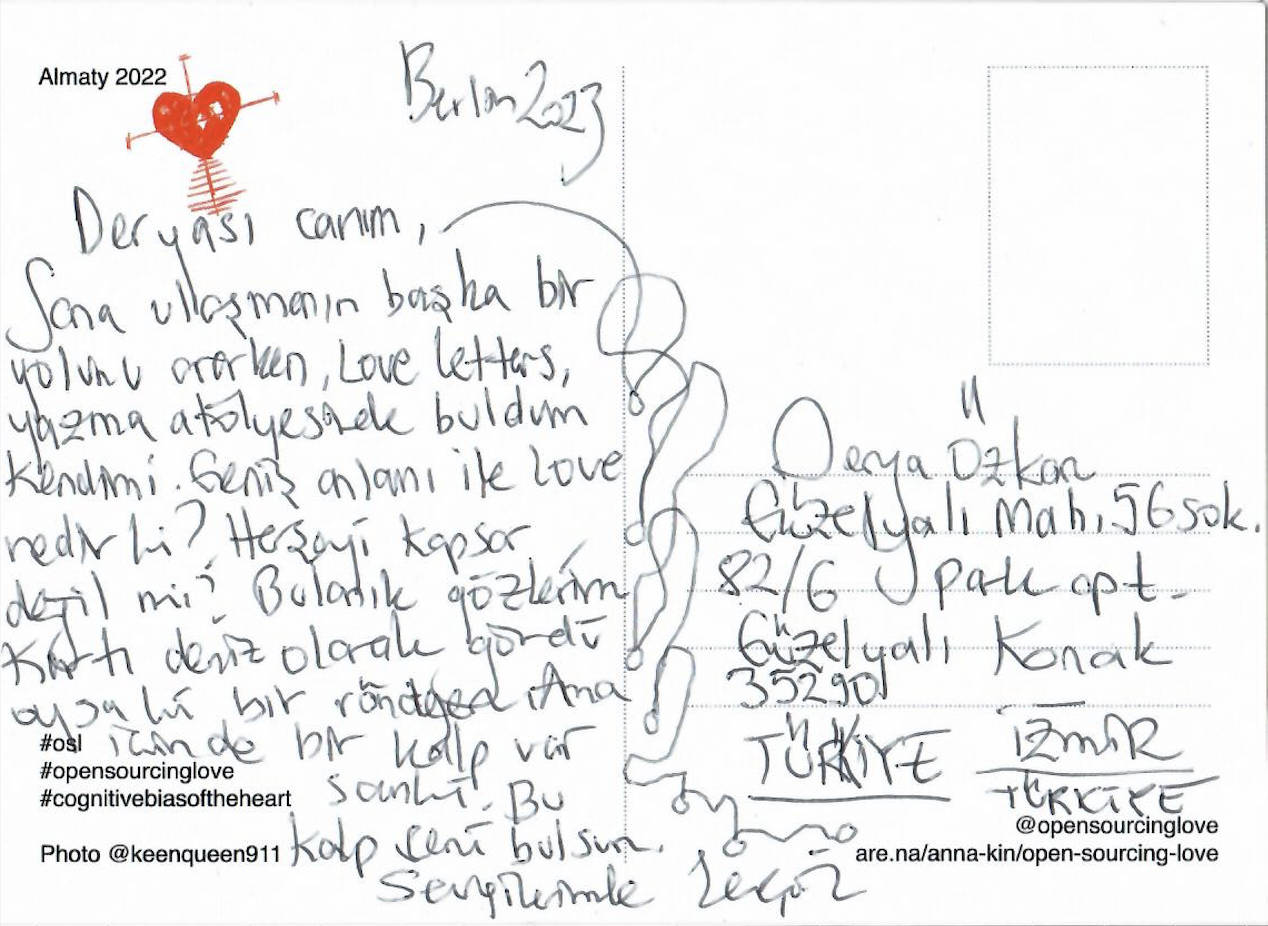 Almaty 2022
Berlin 2023
Deryası canım,
Sana ulaşmanın başka bir
yolunu ararken, Love letters,
yazma atölyesinde buldum
kendimi. Geniş anlamı ile love
nedir ki? Herşeyi kapsar
değil mi? Bulanık gözlerim
Kartı deniz olarak gördü
oysa ki bir röntgen. Ama
içinde bir kalp var
sanki. Bu
kalp seni bulsun.
Sevgilerimle
#osl
#opensourcinglove
#cognitivebiasoftheheart
Photo @keenqueen911
Derya Özkan
Güzelyalı Mah. 56 sok.
82/6 park apt.
Güzelyalı Konak
35290
TÜRKİYE İZMİR
TÜRKİYE
@opensourcinglove
are.na/anna-kin/open-sourcing-love